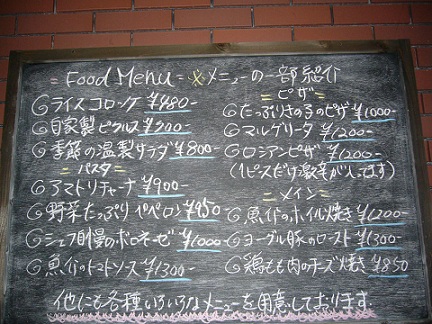 = Food Menu = ※メニューの一部紹介
◎ライスコロッケ ¥480-
◎自家製ピクルス ¥300-
◎季節の温製サラダ ¥800-
= パスタ =
◎アマトリチャーナ ¥900-
◎野菜たっぷりペペロン ¥950
◎シェフ自慢のボロネーゼ ¥1000-
◎魚介のトマトソース ¥1300-
= ピザ =
◎たっぷりきのこのピザ ¥1000-
◎マルゲリータ ¥1200-
◎ロシアンピザ ¥1200-
(1ピースだけ激辛が入ってます)
= メイン =
◎魚介のホイル焼き ¥1200-
◎ヨーグル豚のロースト ¥1300-
◎鶏もも肉のチーズ焼き ¥850
他にも各種いろいろなメニューを用意しております。